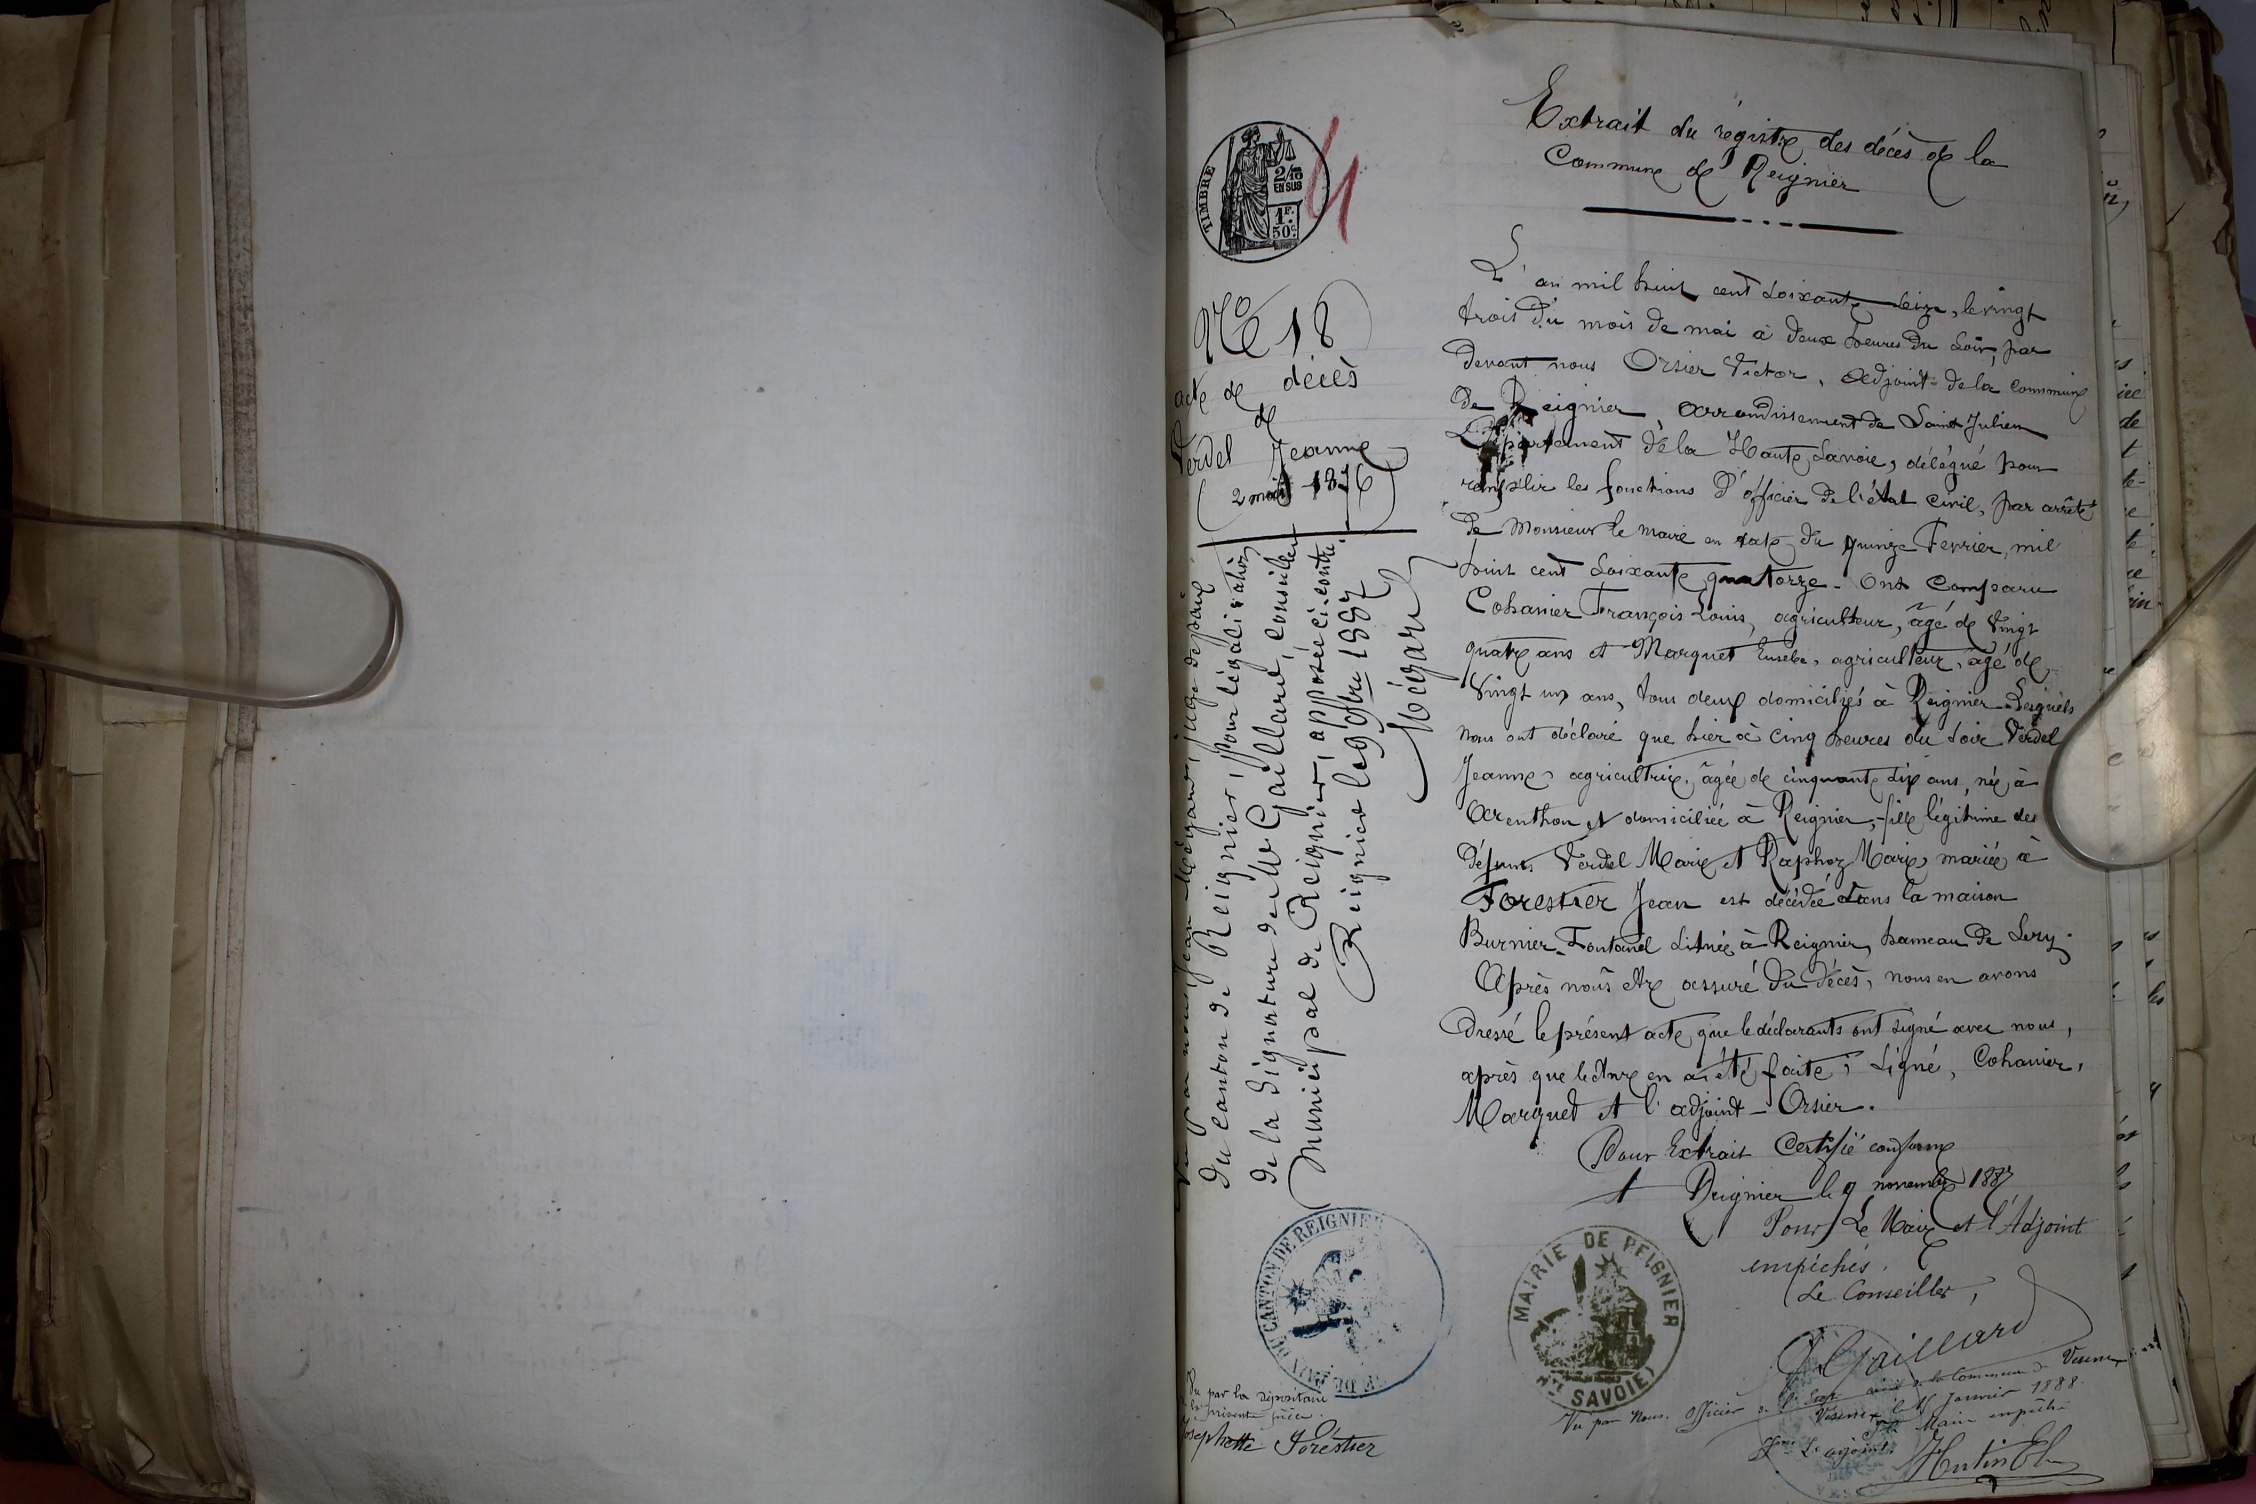 Extrait du régistre des décès de la
Commune de Reignier
TIMBRE
2/10
EN SUS
1F.
50c.
4
No 18
acte de décès
de
Verdel Jeanne
(2 mai 1876)
L'an mil huit cent soixante seize, le vingt
trois du mois de mai à deux heures du soir, par
devant nous Orsier Victor, adjoint de la commune
de Reignier, arrondissement de Saint Julien
Département de la Haute Savoie, délégué pour
remplir les fonctions d'officier de l'état civil, par arrêté
de Monsieur le maire en date du quinze Fevrier, mil
huit cent soixante quatorze - Ont Comparu
Cohanier François Louis, agriculteur, âgé de vingt
quatre ans et Marquet Eusebe, agriculteur, âgé de
vingt un ans, tous deux domiciliés à Reignier - Lesquels
nous ont déclaré que hier à cinq heures du soir Verdel
Jeanne agricultrice, âgée de cinquante dix ans, née à
Arenthon et domiciliée à Reignier, fille légitime des
défunts Verdel Marie et Raphoz Marie, mariée à
Forestier Jean est décédée dans la maison
Burnier-Fontanel située à Reignier, hameau de Lery.
Après nous être assuré du décès, nous en avons
dressé le présent acte que le déclarants ont signé avec nous,
après que lecture en a été faite; Signé, Cohanier,
Marquet et l'adjoint - Orsier.
Pour Extrait Certifié conforme
A Reignier le 9 novembre 1887
Pour Le Maire et l'Adjoint
empéchés.
Le Conseiller,
Gaillard
Vu par nous, Jean Mégard, juge de paix
du canton de Reignier, pour légalisation
de la signature de Mr Gaillard, conseiller
municipal de Reignier, apposée ci-contre.
Reignier le 9 9bre 1887
Mégard
DU CANTON DE REIGNIER
DE PAIX
MAIRIE DE REIGNIER
(Hte SAVOIE)
Vu par la dépositaire
la présente pièce.
Josephette Forestier
Vu par Nous. Officier de l'Etat civil de la Commune de
le 16 Janvier 1888.
Maire empêché
L'adjoint.